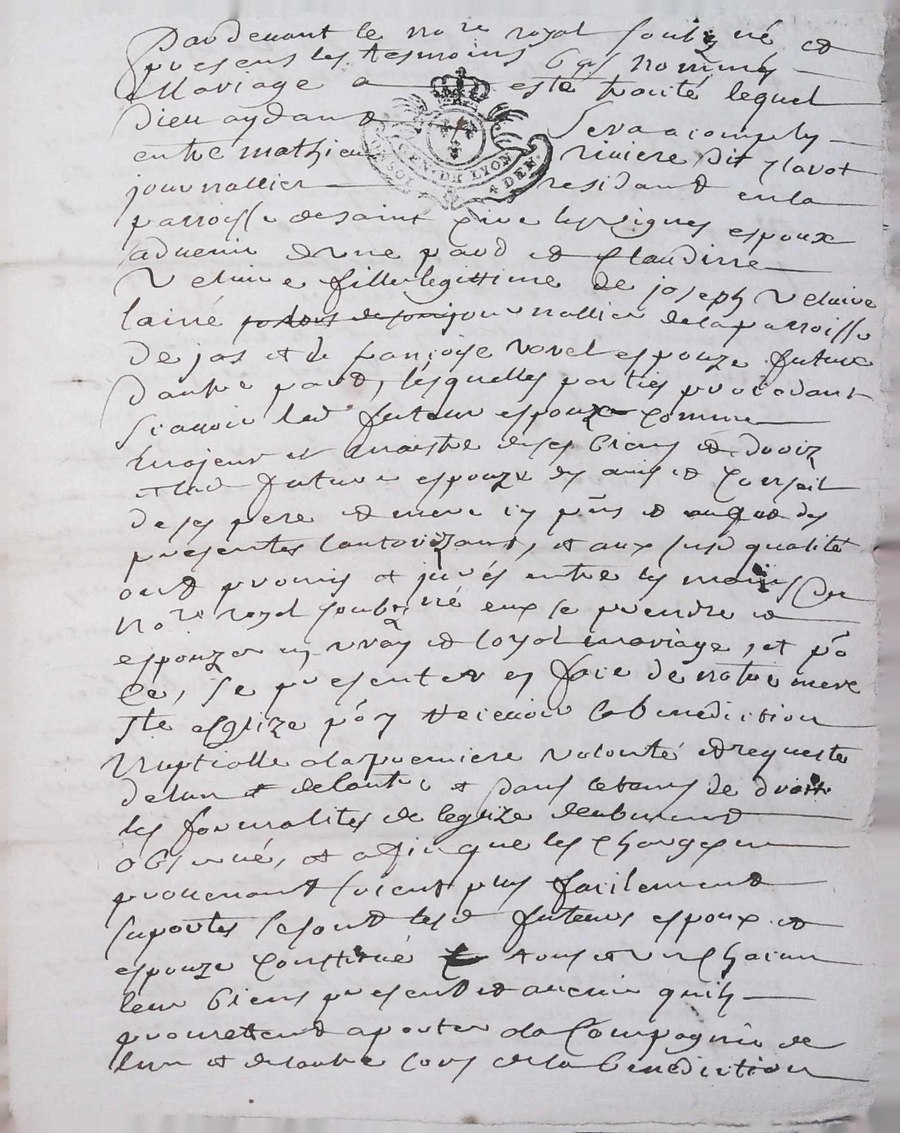 Pardevant le no.re royal soubz.né et
presens les tesmoins bas nommés
Mariage a esté traité lequel
dieu aydant sera acomply
GEN. DE LYON
DEUX SOL 4 DEN.
entre mathieu riviere dit
journallier residant en la
parroisse de saint espoux
advenir d'une part et Claudinne
Veluire fille legittime de joseph Veluire
lainé journallier de la parroisse
de jas et de françoise espouze future
dautre part, lesquelles parties procedant
scavoir led futeur espoux comme
majeur et maistre de ses biens et droiz
et lad future espouze de avis et Conseil
de ses pere et mere icy p̃ns et des
presentes lautorizants, et aux susd qualité
ont promis et jurés entre les mains du
No.re royal soubz.né eux se prendre et
espouzer en vray et loyal mariage, et põ
Ce, se presenter en face de notre mere
Ste esglize põr recevoir la benediction
Nuptialle a la premiere volonté et requeste
de lun et de lautre et dans le tems de droit
les formalites de leglize deubment
observé, et afin que les charges en
provenant soient plus facilement
suportés se sont lesd futeurs espoux et
espouze Constitué tous et un chacun
leur biens present et avenir quils
promettent aporter a la Compagnie de
lun et de lautre lors de la benediction